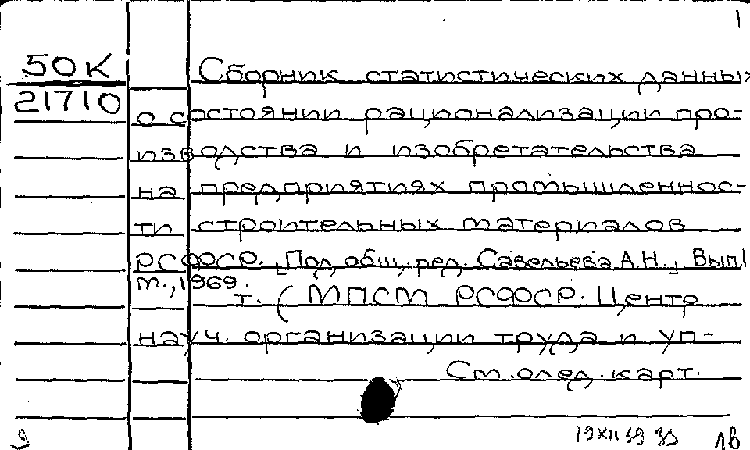 1
50К
21710
Сборник статистических данных
о состоянии рационализации про-
изводства и изобретательства
на предприятиях промышленнос-
ти строительных материалов
РСФСР. Под общ. ред. Савельева А.Н., Вып 1
т., 1969.
т. (МПСМ РСФСР. Центр
науч. организации труда и уп-
См. след. карт.